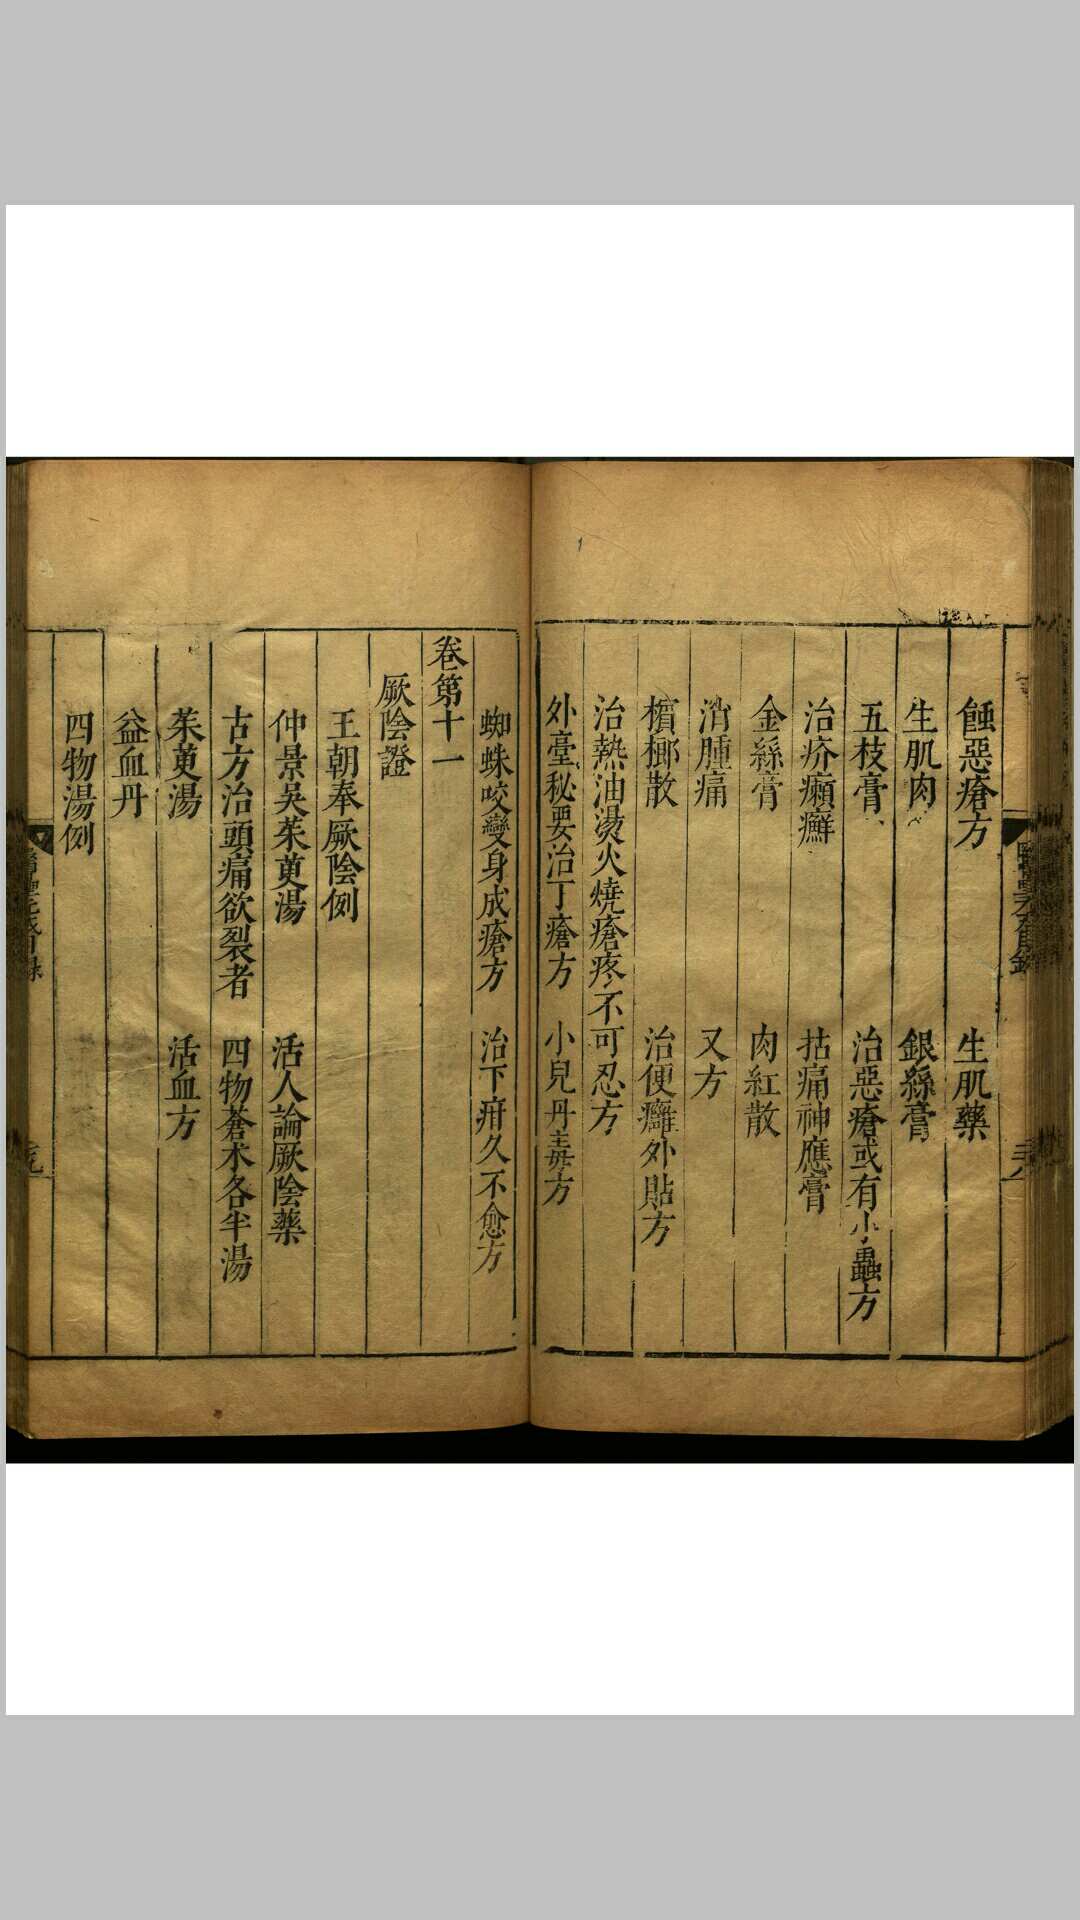 蝕惡瘡方　生肌藥
生肌肉　銀絲膏
五枝膏　治惡瘡或有小蟲方
治疥癩癬　拈痛神應膏
金絲膏　肉紅散
消腫痛　又方
檳榔散　治便癰外貼方
治熱油燙火燒瘡疼不可忍方
外臺秘要治丁瘡方　小兒丹毒方
蜘蛛咬變身成瘡方　治下疳久不愈方
卷第十一
厥陰證
王朝奉厥陰例
仲景吳茱萸湯　活人論厥陰藥
古方治頭痛欲裂者　四物蒼朮各半湯
茱萸湯　活血方
益血丹
四物湯例